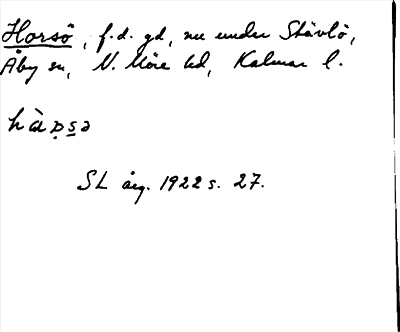 Horsö, f.d. gd, nu under Stävlö,
Åby sn, N. Möre hd, Kalmar l.
SL årg. 1922 s. 27.